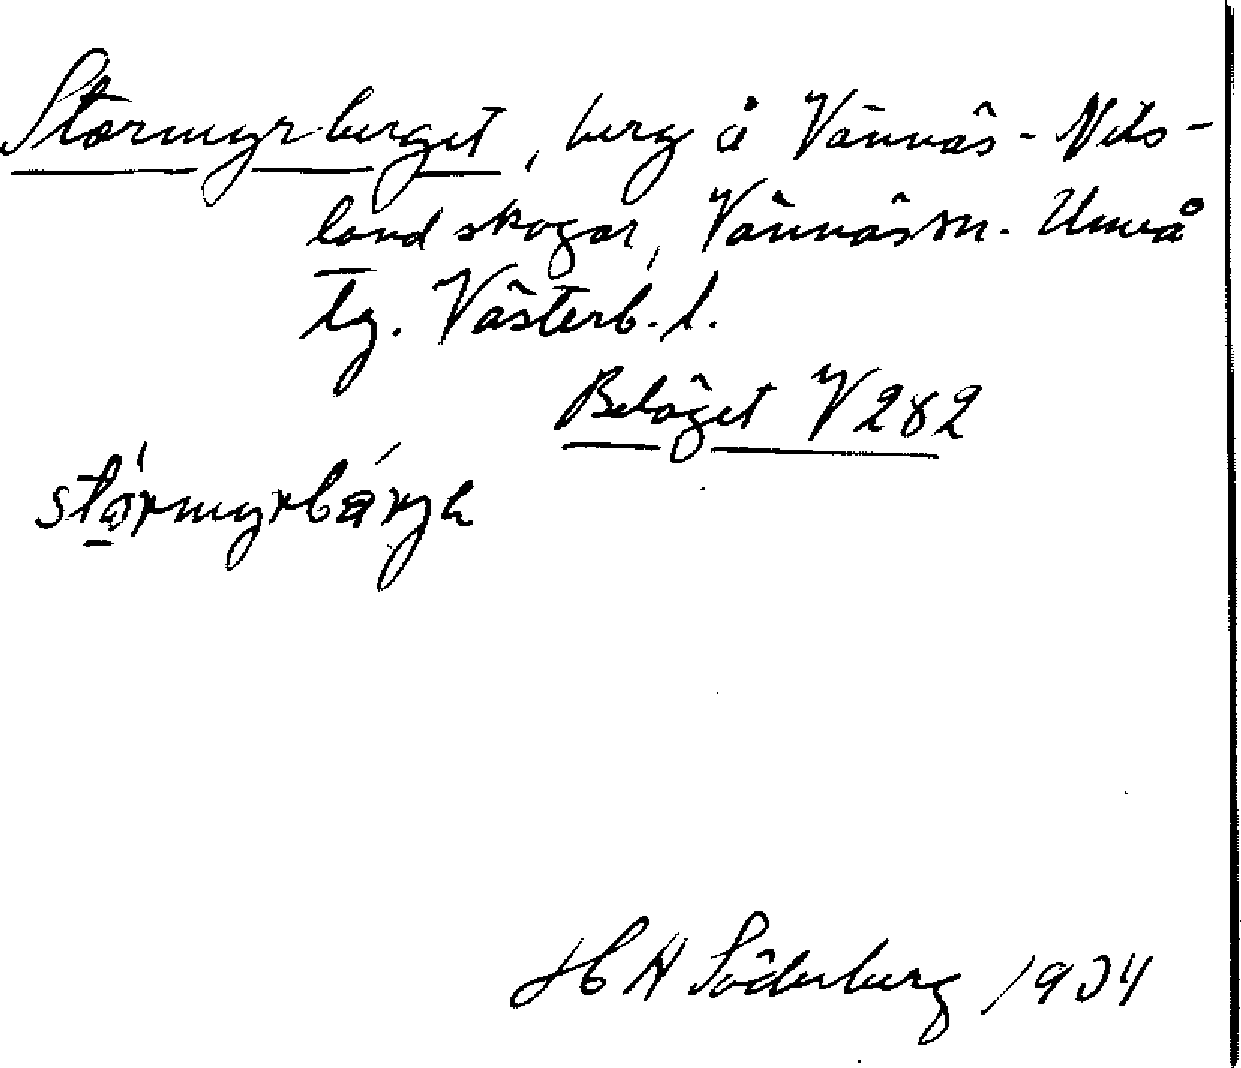 Stormyrberget, berg å Vännäs-Nils-
land skogar, Vännäs sn. Umeå
tg. Västerb. l.
Beläget V 282
stórmyrbárjɂ
H A Söderberg 1934